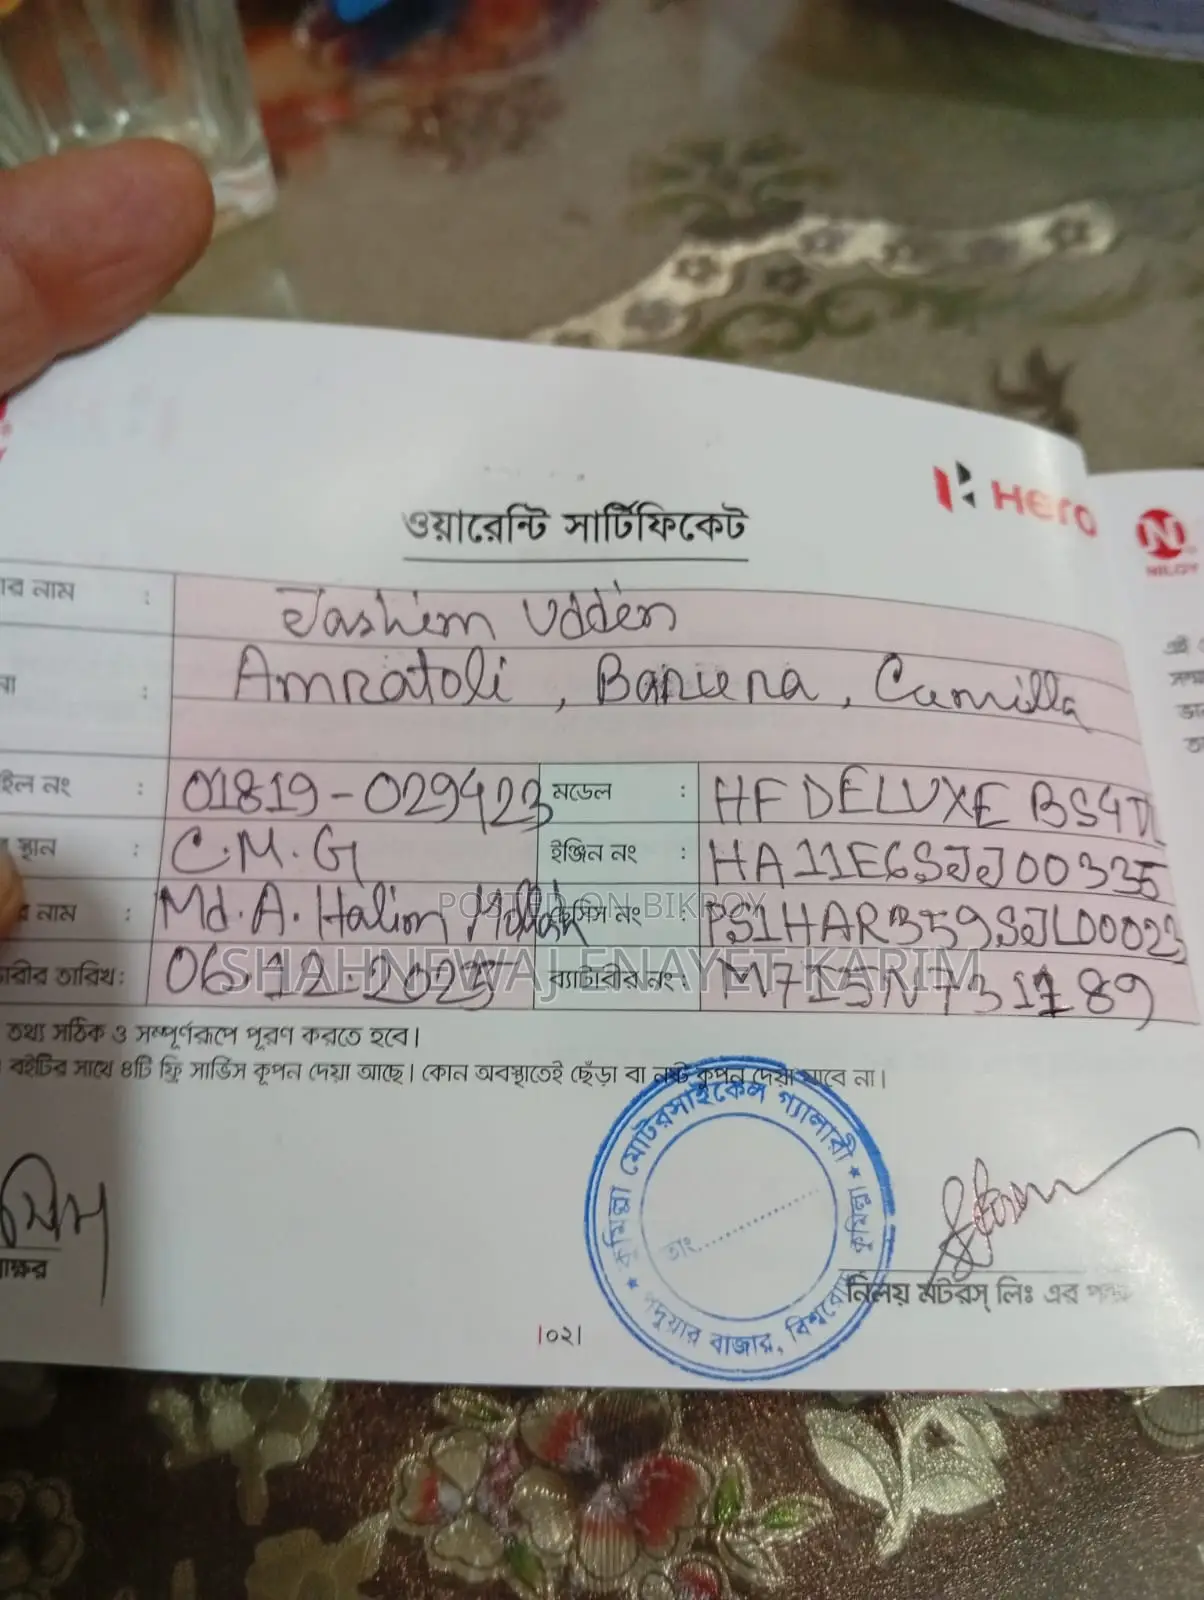 HERO
NILOY
ওয়ারেন্টি সার্টিফিকেট
নাম : Jashim Uddin
: Amratoli , Barura , Cumilla
নং : 01819-029423 মডেল : HF DELUXE BS4
স্থান : C.M.G ইঞ্জিন নং : HA11E6SJJ00335
নাম : Md. A. Halim Mollah নং : PS1HAR359SJL00023
তারিখ: 06.12-2025 ব্যাটারীর নং: M715N731189
POSTED ON BIKROY
SHAHNEWAJ ENAYET KARIM
তথ্য সঠিক ও সম্পূর্ণরূপে পূরণ করতে হবে।
বইটির সাথে ৪টি ফ্রি সার্ভিস কূপন দেয়া আছে। কোন অবস্থাতেই ছেঁড়া বা নষ্ট কূপন দেয়া যাবে না।
কুমিল্লা মোটরসাইকেল গ্যালারী
তাং
পদুয়ার বাজার, বিশ্বরোড, কুমিল্লা
নিলয় মটরস্ লিঃ এর
।০২।